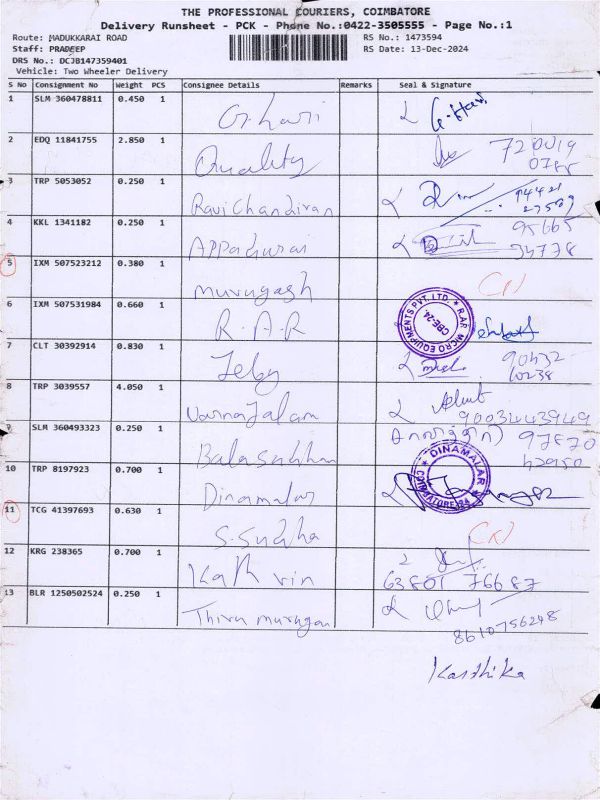 THE PROFESSIONAL COURIERS, COIMBATORE
Delivery Runsheet - PCK - Phone No.:0422-3505555 - Page No.:1
Route: MADUKKARAI ROAD RS No.: 1473594
Staff: PRADEEP RS Date: 13-Dec-2024
DRS No.: DCJB147359401
Vehicle: Two Wheeler Delivery
S No Consignment No Weight PCS Consignee Details Remarks Seal & Signature
1 SLM 360478811 0.450 1 G.hari G-Hari
2 EDQ 11841755 2.850 1 Quality
3 TRP 5053052 0.250 1 Ravichandiran
4 KKL 1341182 0.250 1 Appadurai 95665
5 IXM 507523212 0.380 1 murugash
6 IXM 507531984 0.660 1 R.A.R R.AR MICRO EQUIPMENTS PVT. LTD. CBE-24
7 CLT 30392914 0.830 1 Jeby 90432
60238
8 TRP 3039557 4.050 1 Varnajalam 9003443949
9 SLM 360493323 0.250 1 Balasubham 97870
10 TRP 8197923 0.700 1 Dinamalar DINAMALAR COIMBATORE-24
11 TCG 41397693 0.630 1 S.Subha
12 KRG 238365 0.700 1 Kathirvin 63801 76687
13 BLR 1250502524 0.250 1 Thirumurugan 8610756248
Karthika